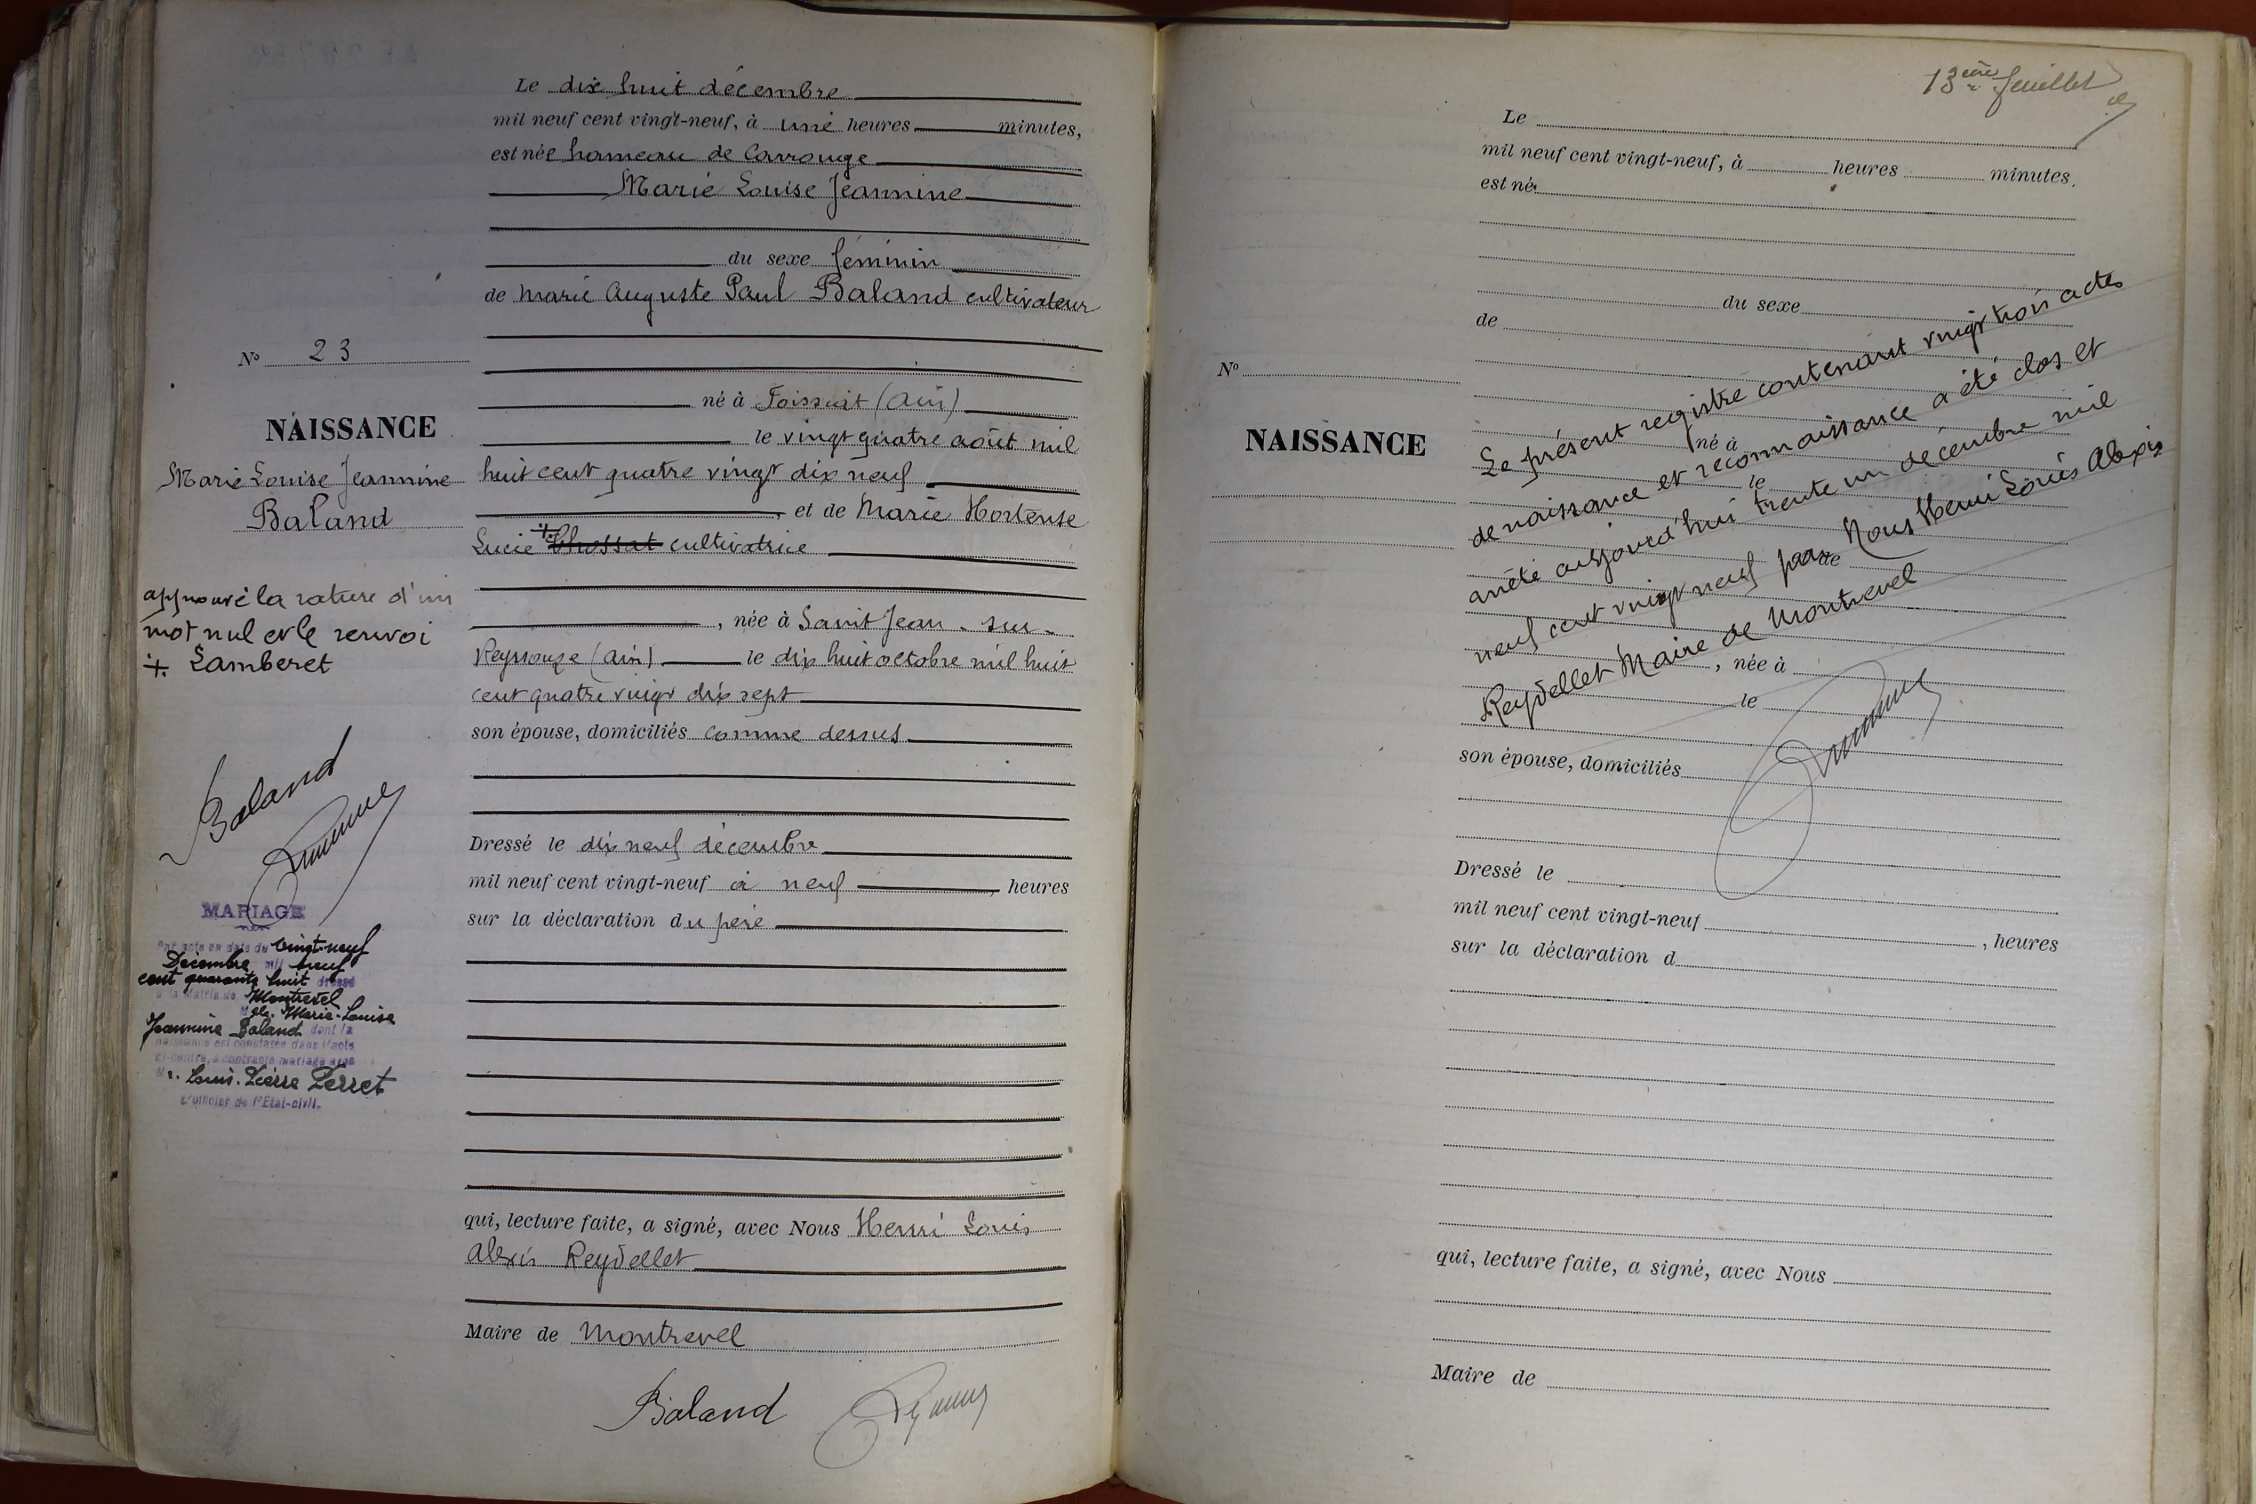 Le dix huit décembre
mil neuf cent vingt-neuf, à une heures minutes,
est née hameau de Carrouge
Marie Louise Jeannine
du sexe féminin
de Marie Auguste Paul Baland cultivateur
né à Foissiat (Ain)
le vingt quatre août mil
huit cent quatre vingt dix neuf
, et de Marie Hortense
Lucie ÷ Chossat cultivatrice
, née à Saint Jean-sur-
Reyssouze (Ain) le dix huit octobre mil huit
cent quatre vingt dix sept
son épouse, domiciliés comme dessus
Dressé le dix neuf décembre
mil neuf cent vingt-neuf à neuf , heures
sur la déclaration du père
qui, lecture faite, a signé, avec Nous Henri Louis
Alexis Reydellet
Maire de Montrevel
Baland
No 23
NAISSANCE
Marie Louise Jeannine
Baland
approuvé la rature d'un
mot nul et le renvoi
÷ Lamberet
Baland
MARIAGE
Par acte en date du vingt-neuf
Décembre mil neuf
cent quarante huit dressé
à la Mairie de Montrevel
Mlle. Marie-Louise
Jeannine Baland dont la
naissance est constatée dans l'acte
ci-contre, a contracté mariage avec
Mr. Louis. Pierre Perret
L'officier de l'Etat-civil.
13ème feuillet
Le
mil neuf cent vingt-neuf, à heures minutes.
est né
du sexe
de
No
NAISSANCE
né à
le
, et de
, née à
le
son épouse, domiciliés
Dressé le
mil neuf cent vingt-neuf , heures
sur la déclaration d
qui, lecture faite, a signé, avec Nous
Maire de
Le présent registre contenant vingt trois actes
de naissance et reconnaissance a été clos et
arrêté aujourd'hui trente un décembre mil
neuf cent vingt neuf par Nous Henri Louis Alexis
Reydellet Maire de Montrevel